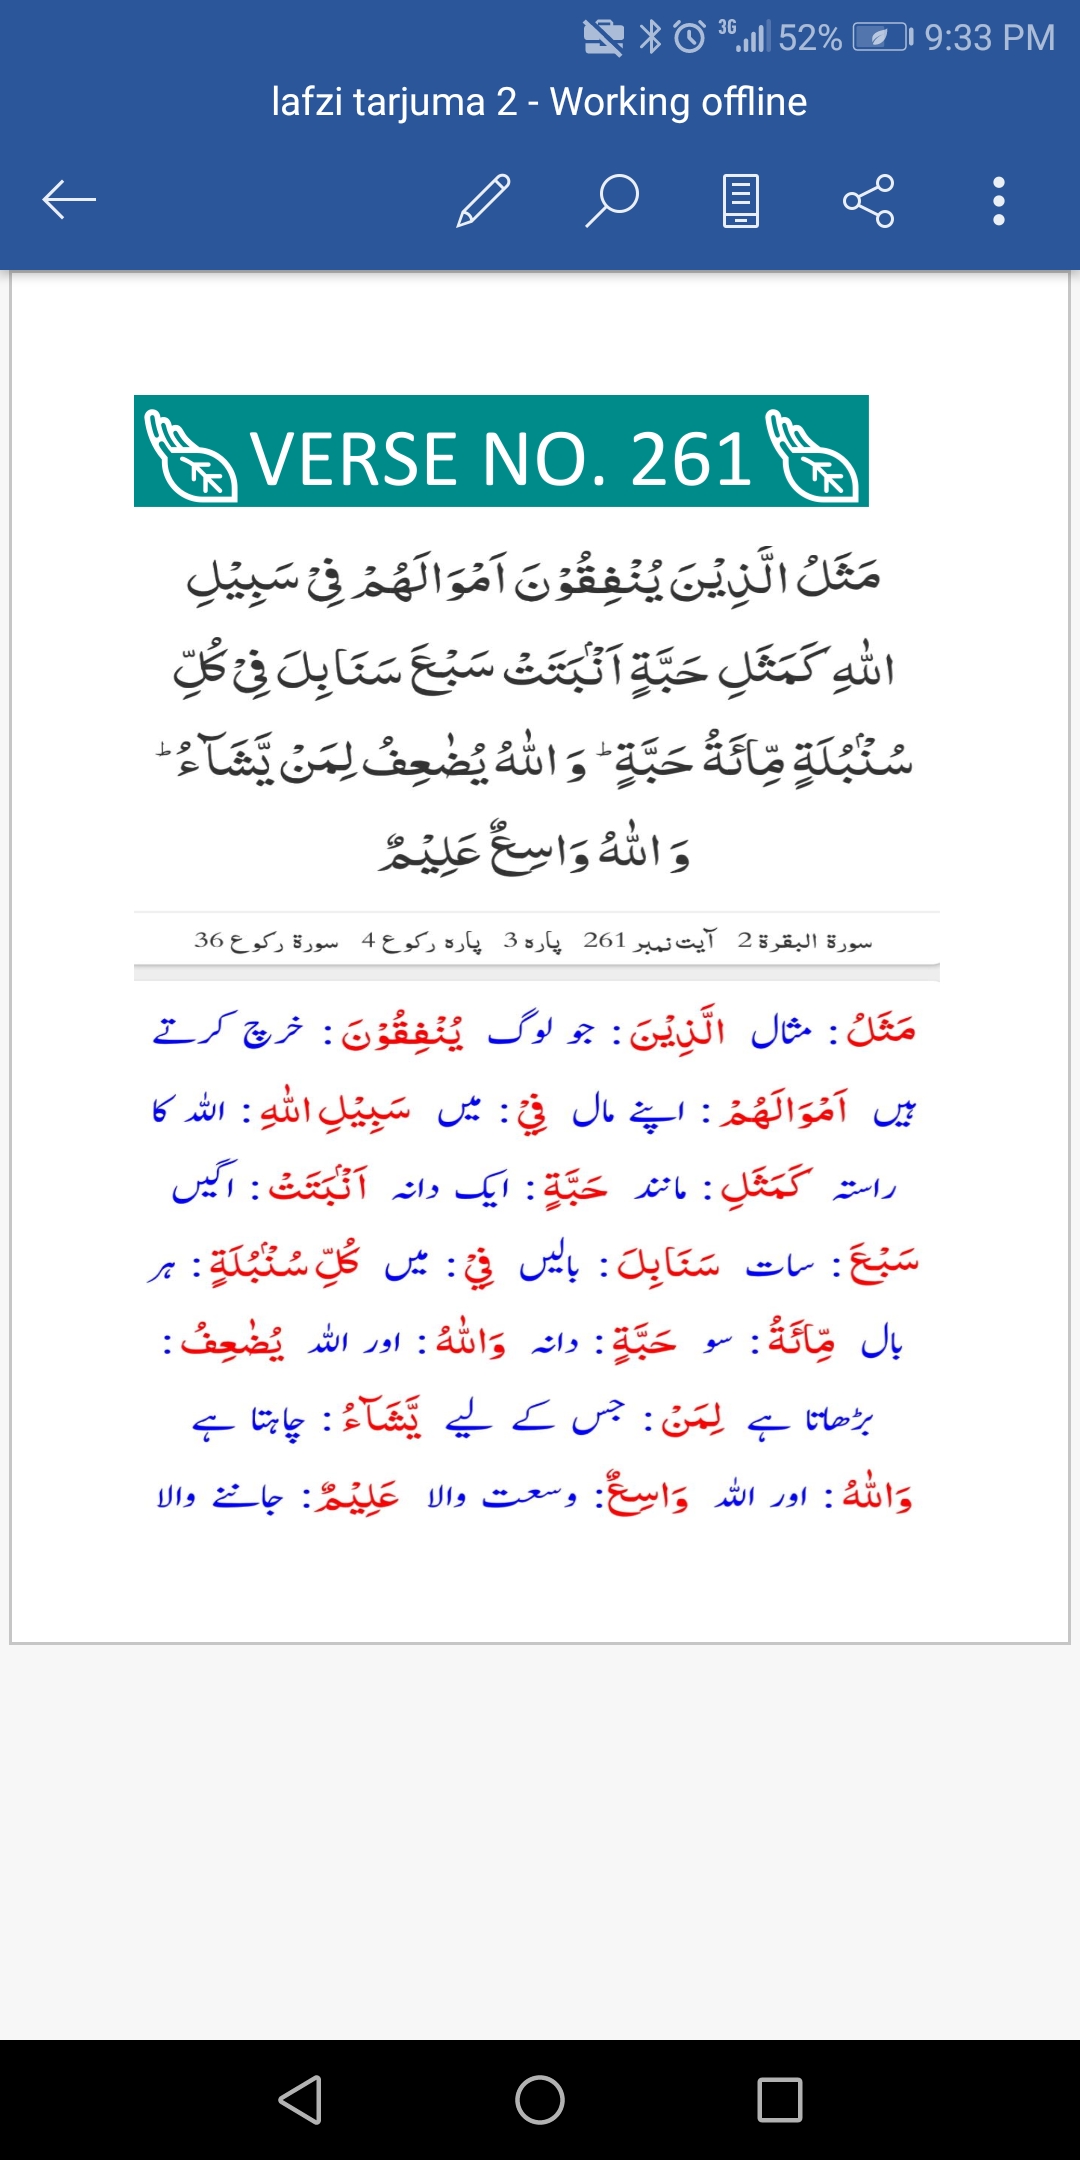 3G 52% 9:33 PM
lafzi tarjuma 2 - Working offline
VERSE NO. 261
مَثَلُ الَّذِیْنَ یُنْفِقُوْنَ اَمْوَالَهُمْ فِیْ سَبِیْلِ
اللّٰهِ كَمَثَلِ حَبَّةٍ اَنْۢبَتَتْ سَبْعَ سَنَابِلَ فِیْ كُلِّ
سُنْۢبُلَةٍ مِّائَةُ حَبَّةٍ ؕ وَ اللّٰهُ یُضٰعِفُ لِمَنْ یَّشَآءُ ؕ
وَ اللّٰهُ وَاسِعٌ عَلِیْمٌ
سورة البقرة 2 آیت نمبر 261 پارہ 3 پارہ رکوع 4 سورة رکوع 36
مَثَلُ : مثال الَّذِیْنَ : جو لوگ یُنْفِقُوْنَ : خرچ کرتے
ہیں اَمْوَالَهُمْ : اپنے مال فِیْ : میں سَبِیْلِ اللّٰهِ : اللہ کا
راستہ كَمَثَلِ : مانند حَبَّةٍ : ایک دانہ اَنْۢبَتَتْ : اگیں
سَبْعَ : سات سَنَابِلَ : بالیں فِیْ : میں كُلِّ سُنْۢبُلَةٍ : ہر
بال مِّائَةُ : سو حَبَّةٍ : دانہ وَاللّٰهُ : اور اللہ یُضٰعِفُ :
بڑھاتا ہے لِمَنْ : جس کے لیے یَّشَآءُ : چاہتا ہے
وَاللّٰهُ : اور اللہ وَاسِعٌ : وسعت والا عَلِیْمٌ : جاننے والا